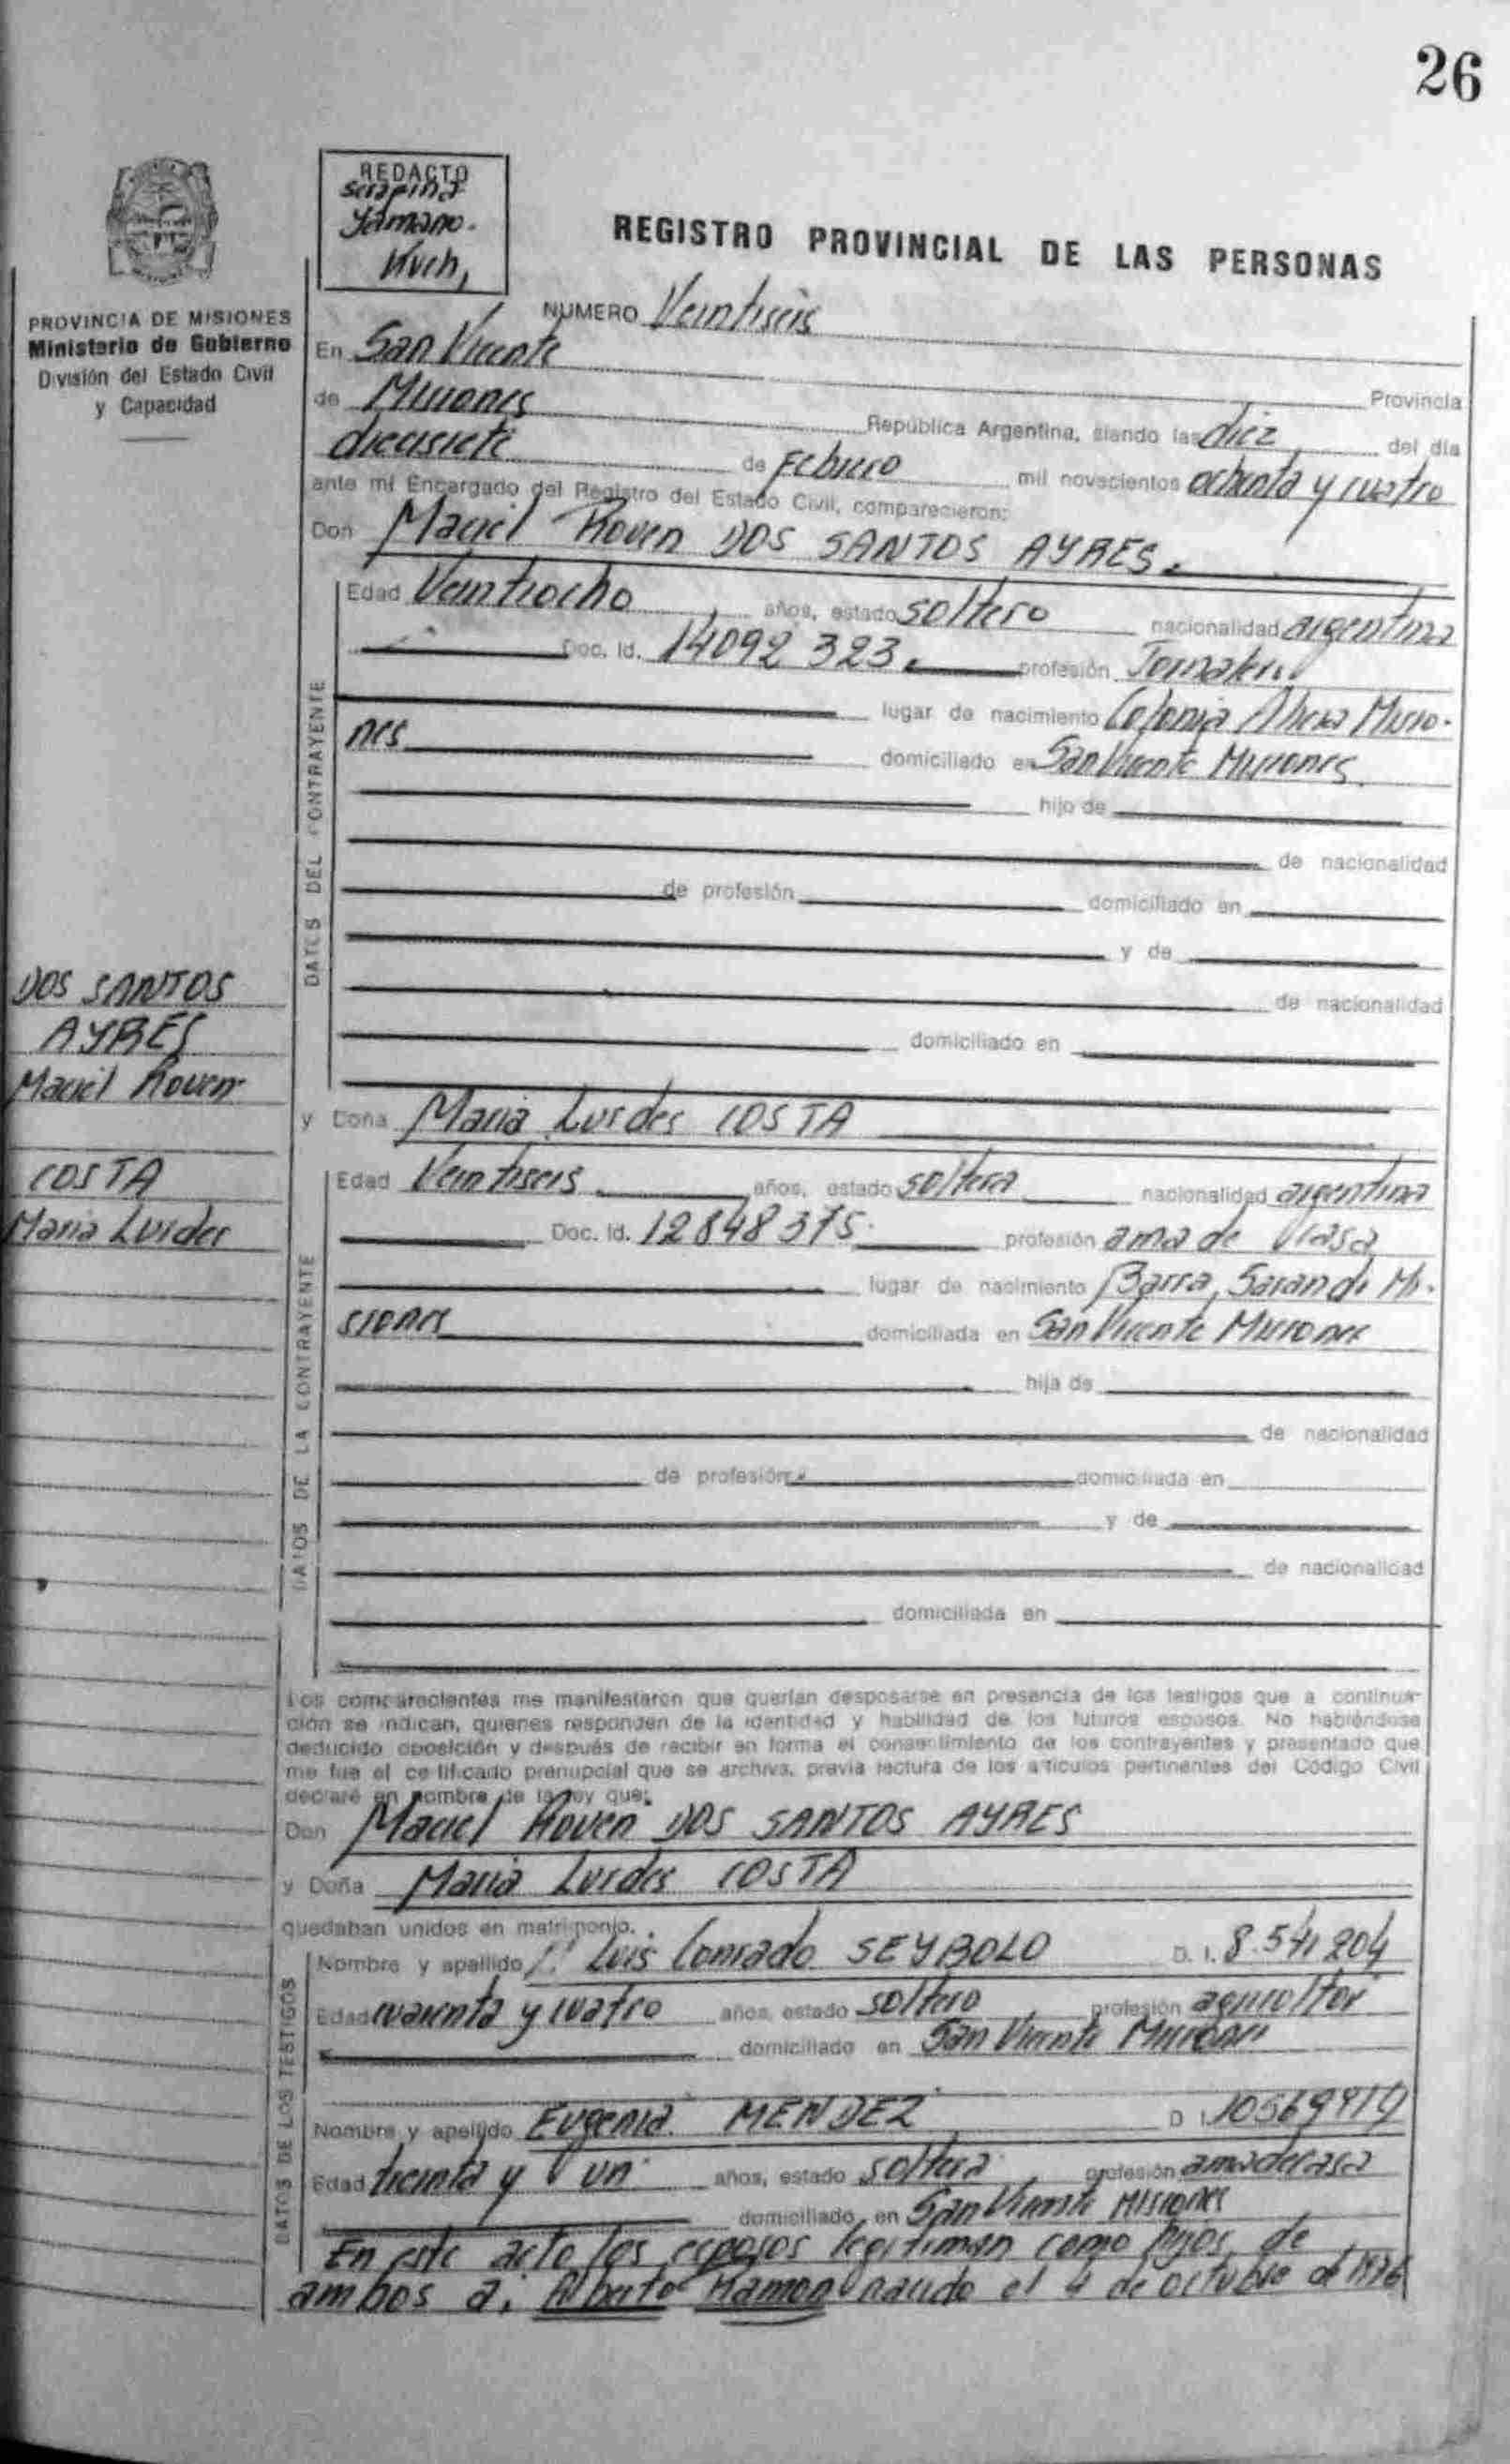 26
REDACTO
Serafina
Yamano.
Kuch,
REGISTRO PROVINCIAL DE LAS PERSONAS
PROVINCIA DE MISIONES
Ministerio de Gobierno
División del Estado Civil
y Capacidad
NUMERO Veintiseis
En San Vicente Provincia
de Misiones República Argentina, siendo las diez del día
diecisiete de Febrero mil novecientos ochenta y cuatro
ante mi Encargado del Registro del Estado Civil, comparecieron:
Don Maciel Roven DOS SANTOS AYRES.
DATOS DEL CONTRAYENTE
Edad Veintiocho años, estado soltero nacionalidad argentina
Doc. Id. 14092 323. profesión Jornalero
lugar de nacimiento Colonia Misio-
nes domiciliado en San Vicente Misiones
hijo de
de nacionalidad
de profesión domiciliado en
y de
de nacionalidad
domiciliado en
DOS SANTOS
AYRES
Maciel Roven
COSTA
Maria Lurdes
y Doña Maria Lurdes COSTA
DATOS DE LA CONTRAYENTE
Edad Veintiseis años, estado soltera nacionalidad argentina
Doc. Id. 12848375. profesión ama de casa
lugar de nacimiento Barra, Sarandi Mi-
siones domiciliada en San Vicente Misiones
hija de
de nacionalidad
de profesión domiciliada en
y de
de nacionalidad
domiciliada en
Los comparecientes me manifestaron que querían desposarse en presencia de los testigos que a continua-
ción se indican, quienes responden de la identidad y habilidad de los futuros esposos. No habiéndose
deducido oposición y después de recibir en forma el consentimiento de los contrayentes y presentado que
me fue el certificado prenupcial que se archiva, previa lectura de los artículos pertinentes del Código Civil
declaré en nombre de la ley que:
Don Maciel Roven DOS SANTOS AYRES
y Doña Maria Lurdes COSTA
quedaban unidos en matrimonio.
DATOS DE LOS TESTIGOS
Nombre y apellido Luis Conrado SEYBOLD D. I. 8.541204
Edad cuarenta y cuatro años, estado soltero profesión agricultor
domiciliado en San Vicente Misiones
Nombre y apellido Eugenia MENDEZ D. I. 10569919
Edad treinta y un años, estado soltera profesión ama de casa
domiciliado en San Vicente Misiones
En este acto los esposos legitiman como hijos de
ambos a: Alberto Ramon nacido el 4 de octubre de 1976